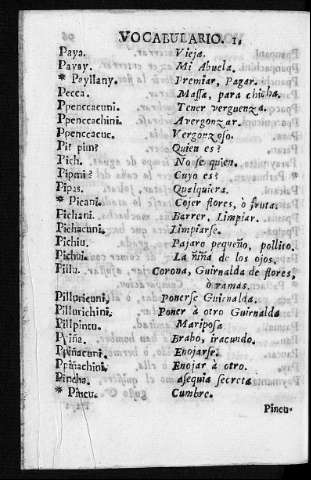 VOCABULARIO. 1.
Paya. Vieja.
Payay. Mi Abuela.
* Payllany. Premiar, Pagar.
Pecca. Massa, para chicha.
Ppenccacuni. Tener verguenza.
Ppenccachini. Avergonzar.
Ppenccacuc. Vergonzoso.
Pi? pim? Quien es?
Pich. No se quien.
Pipmi? Cuyo es?
Pipas. Qualquiera.
* Picani. Cojer flores, ò fruta.
Pichani. Barrer, Limpiar.
Pichacuni. Limpiarse.
Pichiu. Pajaro pequeño, pollito.
Pichiu. La ñiña de los ojos.
Pillu. Corona, Guirnalda de flores,
ò ramas.
Pilluricuni. Ponerse Guirnalda.
Pillurichini. Poner à otro Guirnalda
Pillpintu. Mariposa
Piña. Brabo, iracundo.
Ppiñacuni. Enojarse.
Ppiñachini. Enojar à otro.
Pincha. asequia secreta
* Pincu. Cumbre.
Pincu-